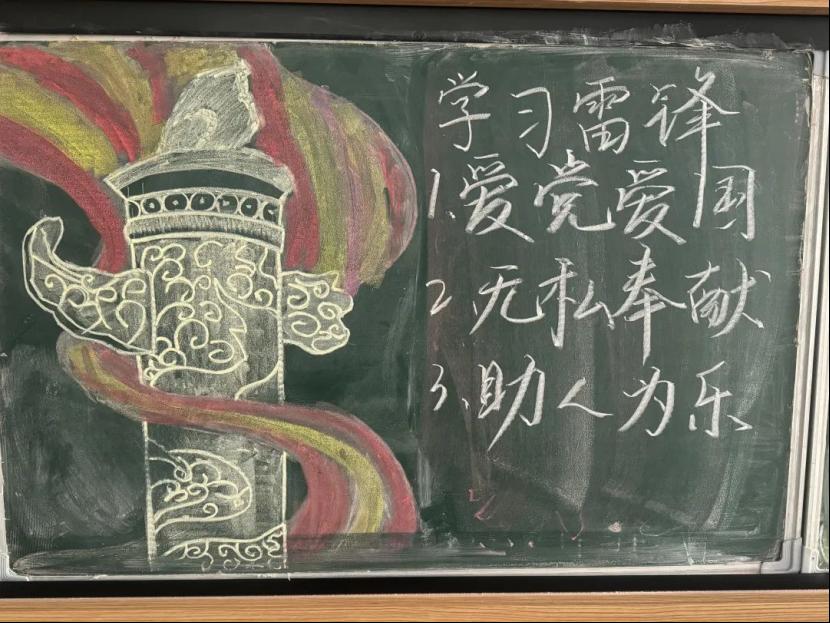 学习雷锋
1.爱党爱国
2.无私奉献
3.助人为乐